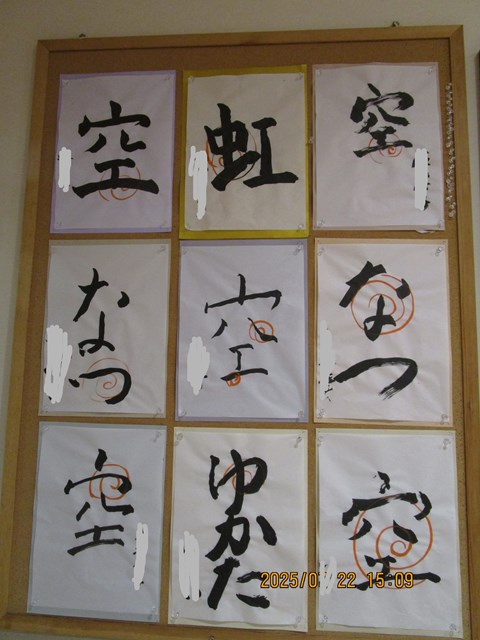 空
虹
空
なつ
空
なつ
空
ゆかた
空
2025/07/22 15:09